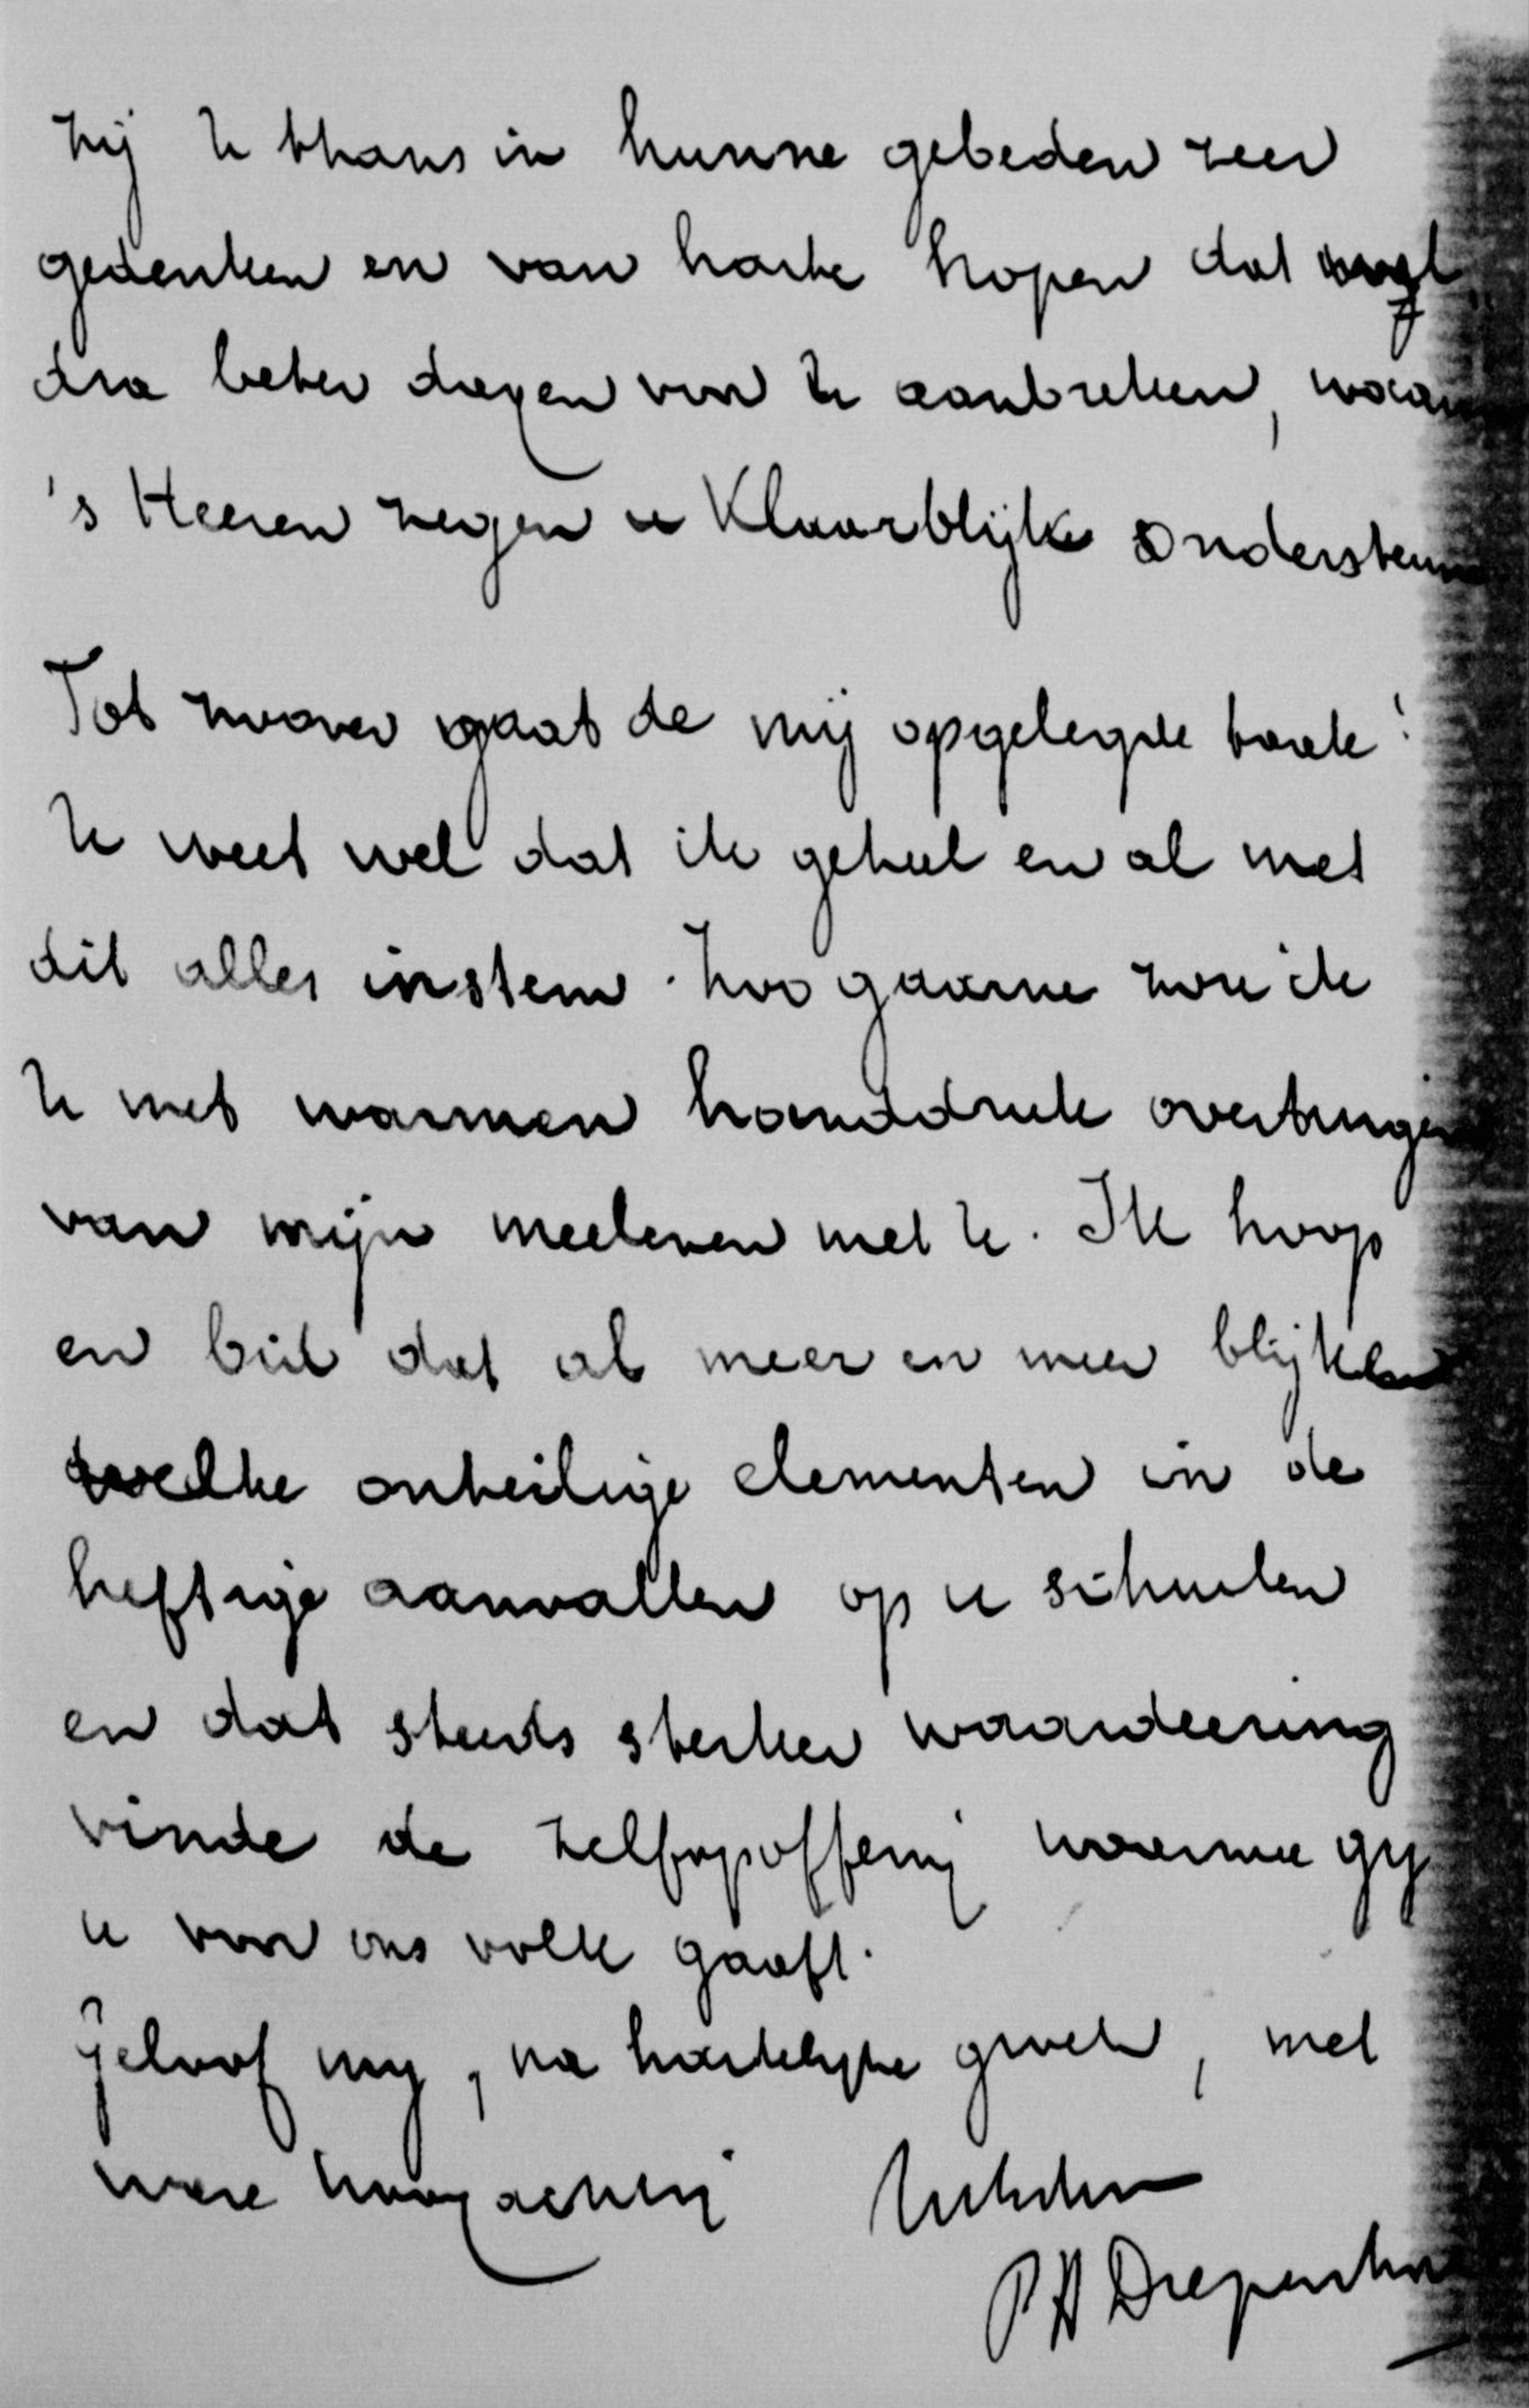 zij U thans in hunne gebeden zeer
gedenken en van harte hopen dat
dra beter dagen voor U aanbreken,
's Heeren zegen u klaarblijk
Tot zoover gaat de mij opgelegde taak!
U weet wel dat ik geheel en al met
dit alles instem. Hoe gaarne zou ik
U met warmen handdruk overtuigen
van mijn meeleven met U. Ik hoop
en bid dat al meer en meer blijken
welke onheilige elementen in de
heftige aanvallen op u schuilen
en dat steeds sterker waardeering
vinde de zelfopoffering waarmee gij
u voor ons volk gaaft.
Geloof mij, na hartelijke groet, met
ware hoogachting
P A Diepenhorst